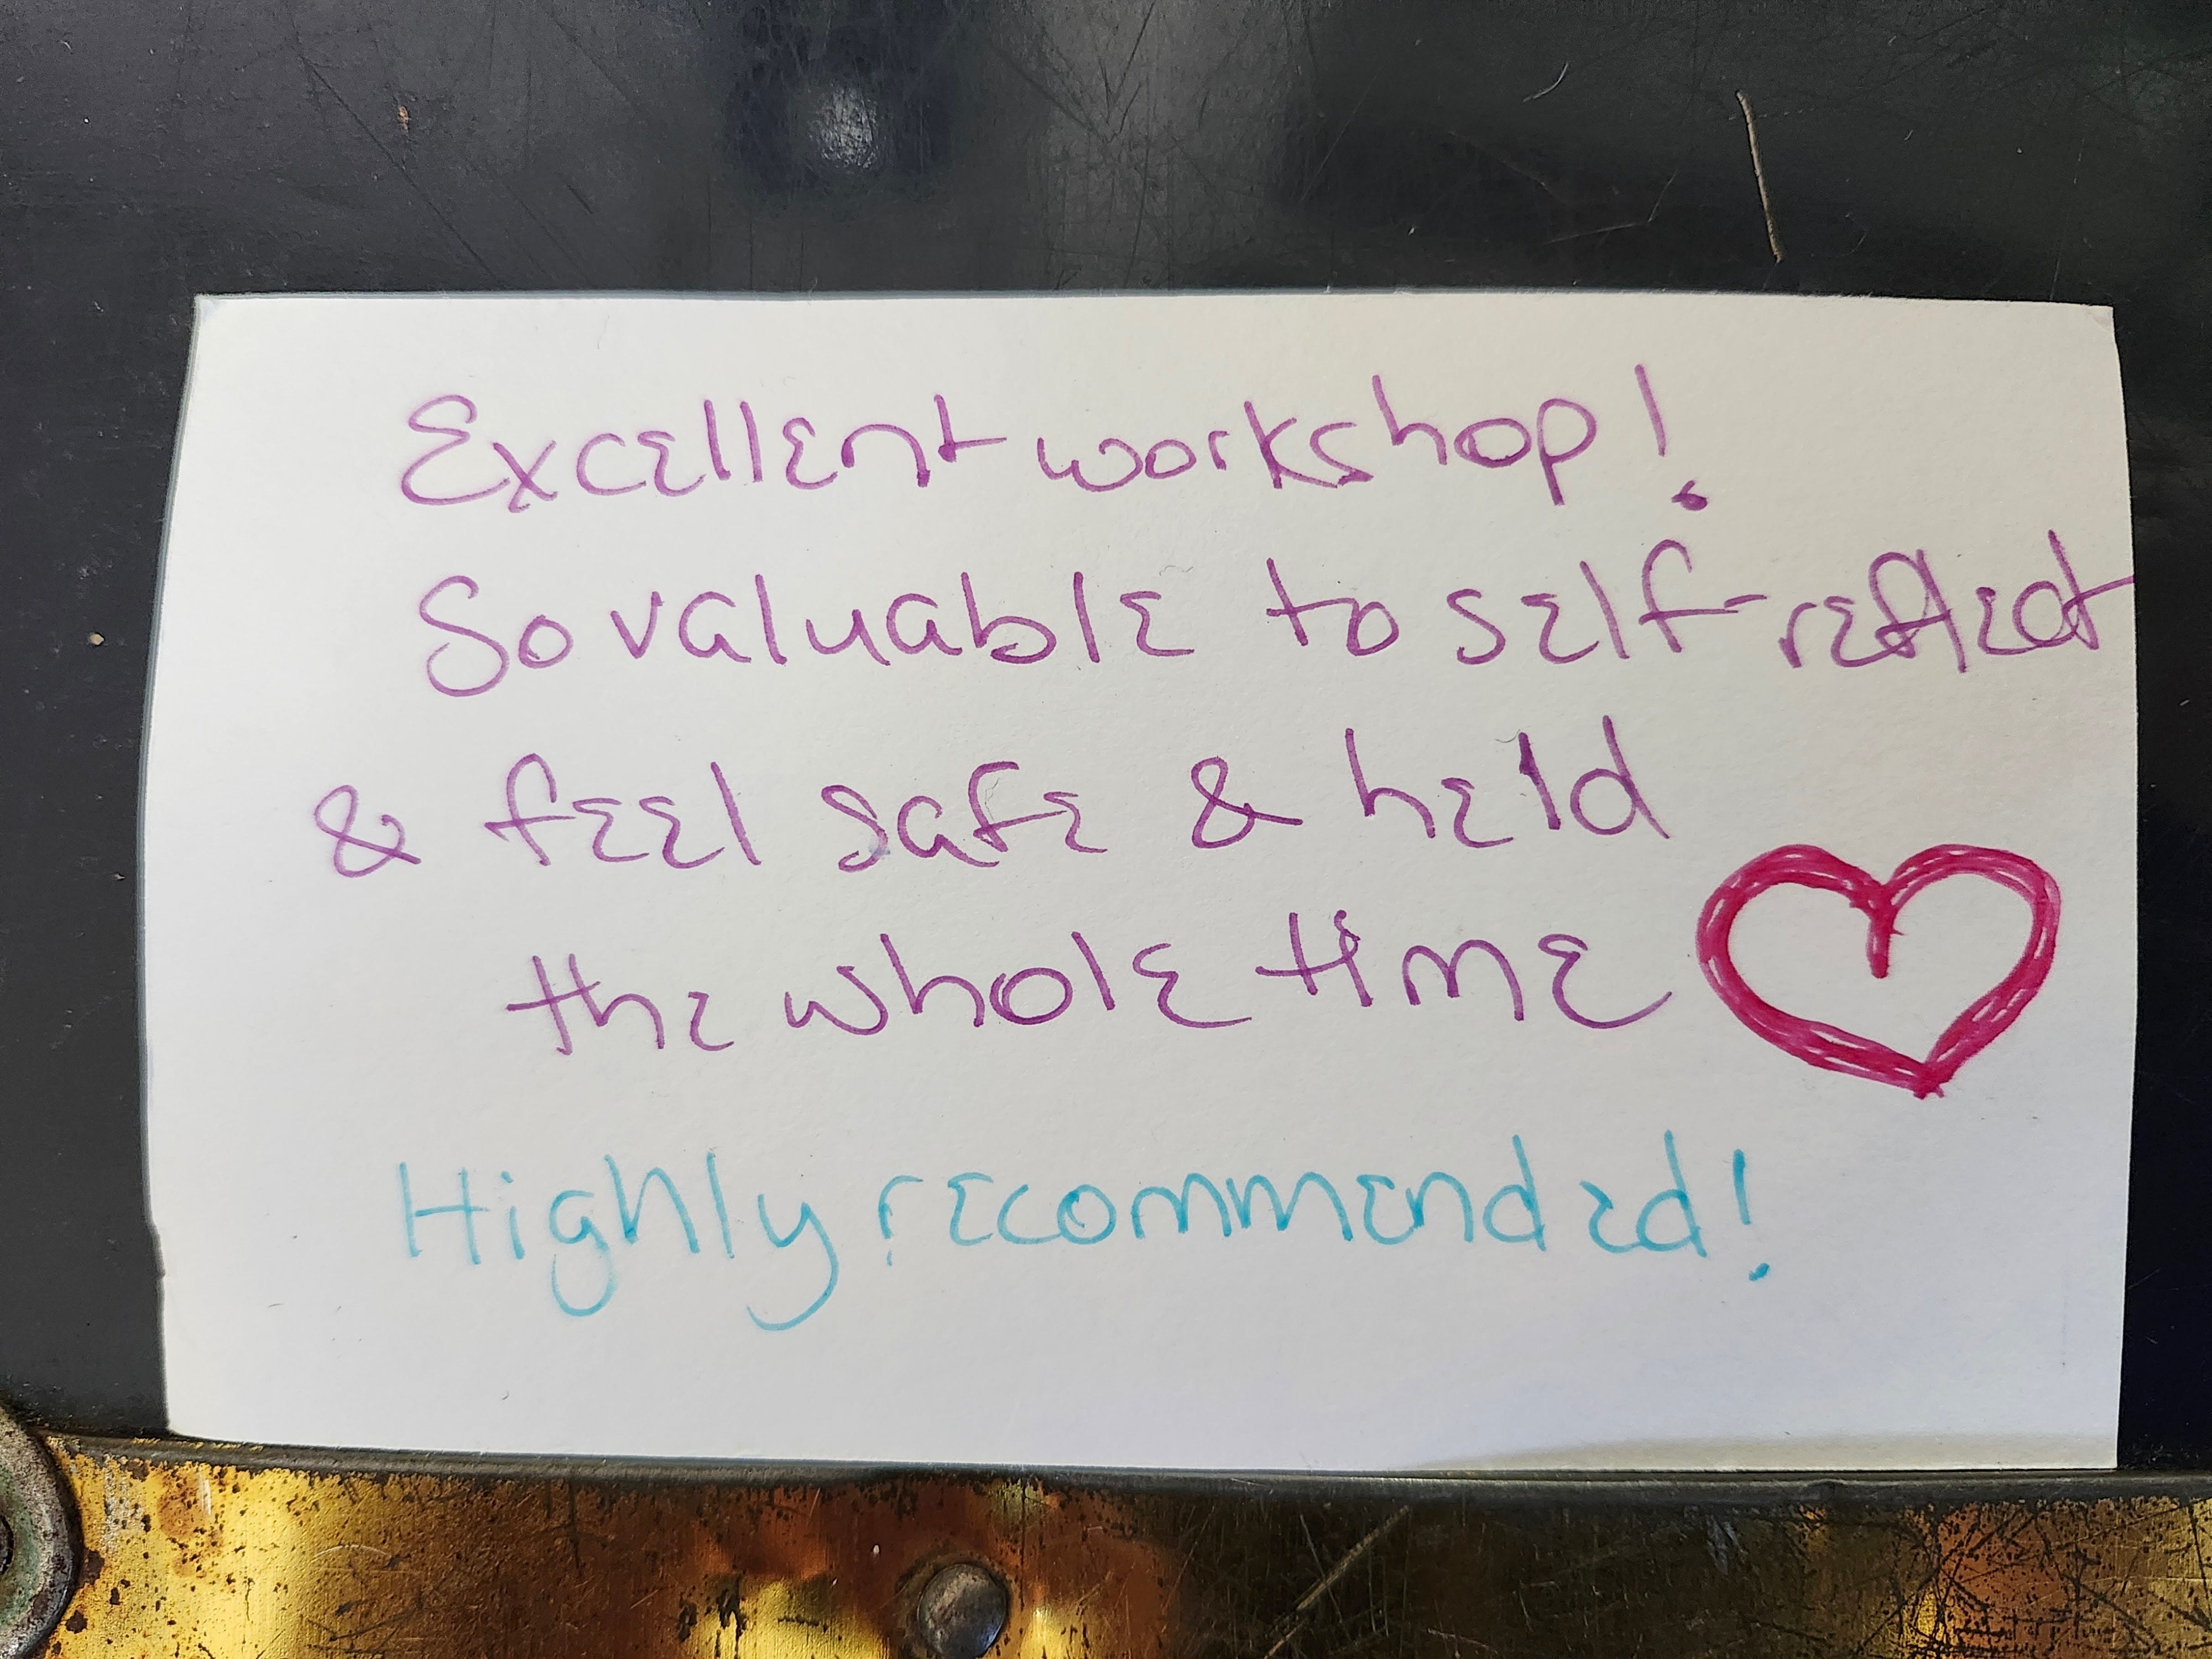 Excellent workshop!
So valuable to self-reflect
& feel safe & held
the whole time
Highly recommended!